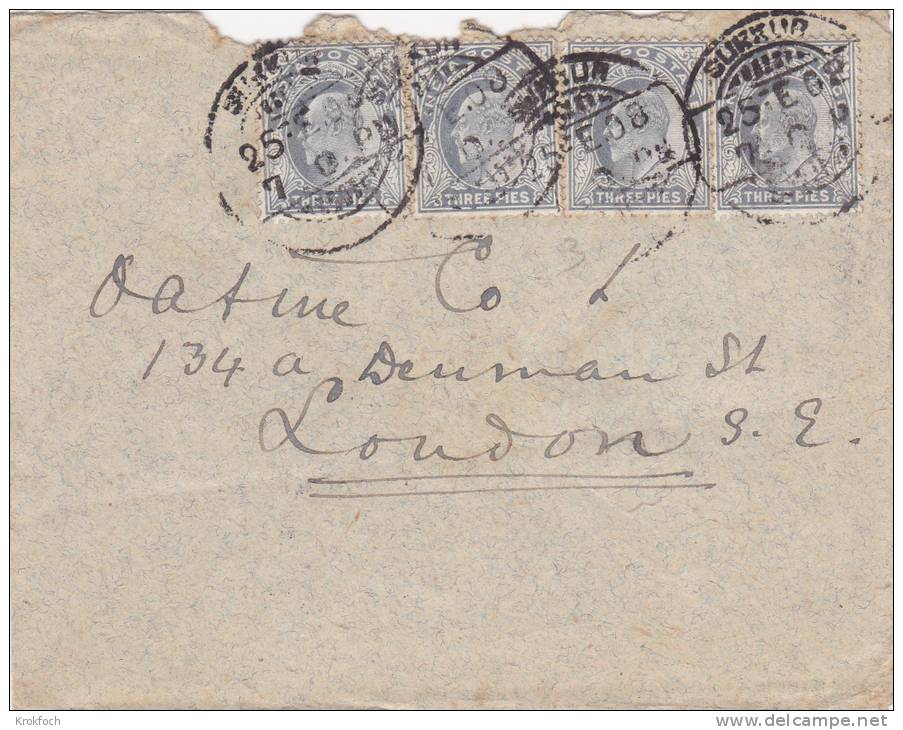 SUKKUR
25 FE 08
THREE PIES THREE PIES THREE PIES THREE PIES
Oatine Co
134 a Denman St
London S. E.
Krokfoch
www.delcampe.net